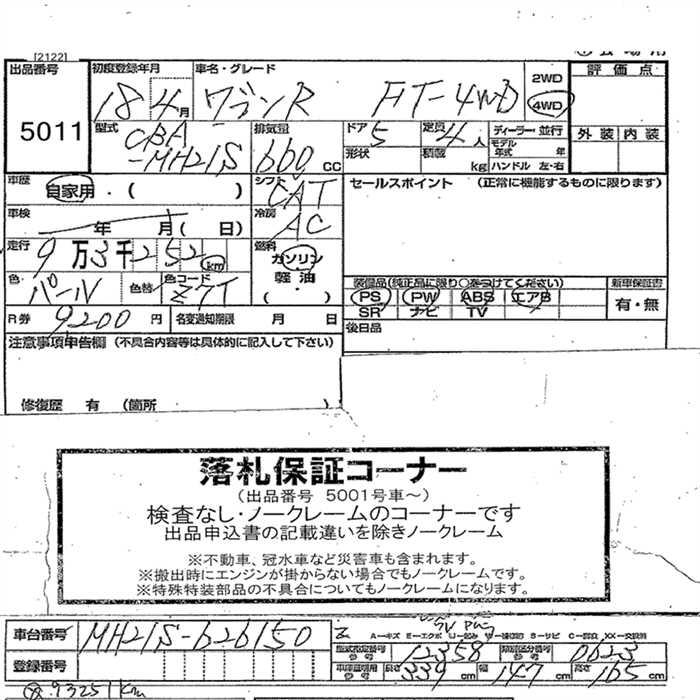 [2122]
出品番号 初度登録年月 車名・グレード 2WD 評価点
18 4月 ワゴンR FT-4WD 4WD
5011 型式 CBA-MH21S 排気量 660cc ドア 5 定員 4人 ディーラー・並行 外装 内装
形状 積載 kg モデル年式 年 ハンドル 左・右
車歴 自家用・( ) シフト CAT セールスポイント (正常に機能するものに限ります)
車検 年 月( 日) 冷房 AC
走行 9万3千252km 燃料 ガソリン 軽油 ( ・ )
色 パール 色替 色コード Z7T
装備品(純正品に限り○をつけてください) 新車保証書
PS PW ABS エアB 有・無
SR ナビ TV
R券 9,200円 名変通知期限 月 日 後日品
注意事項申告欄 (不具合内容等は具体的に記入して下さい)
修復歴 有 (箇所 )
落札保証コーナー
(出品番号 5001号車~)
検査なし・ノークレームのコーナーです
出品申込書の記載違いを除きノークレーム
※不動車、冠水車など災害車も含まれます。
※搬出時にエンジンが掛からない場合でもノークレームです。
※特殊特装部品の不具合についてもノークレームになります。
車台番号 MH21S-626150
A-キズ E-エクボ
型式指定番号 12358 類別区分番号 0023
登録番号 長さ 339cm 幅 147cm 高さ 165cm
93251km